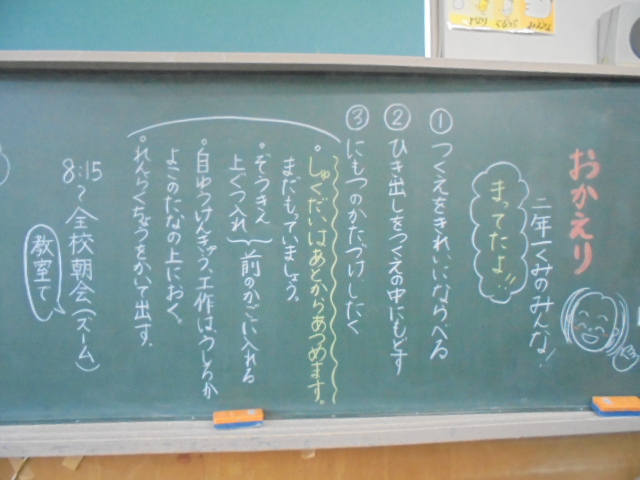 おかえり
二年一くみのみんな!
まってたよ!!
① つくえをきれいにならべる
② ひき出しをつくえの中にもどす
③ にもつのかたづけしたく
・しゅくだいはあとからあつめます。
まだもっていましょう。
・ぞうきん
上ぐつ入れ
前のかごに入れる
・自ゆうけんきゅう、工作は、うしろか
よこのたなの上におく。
・れんらくちょうをかいて出す。
8:15〜全校朝会(ズーム)
教室で